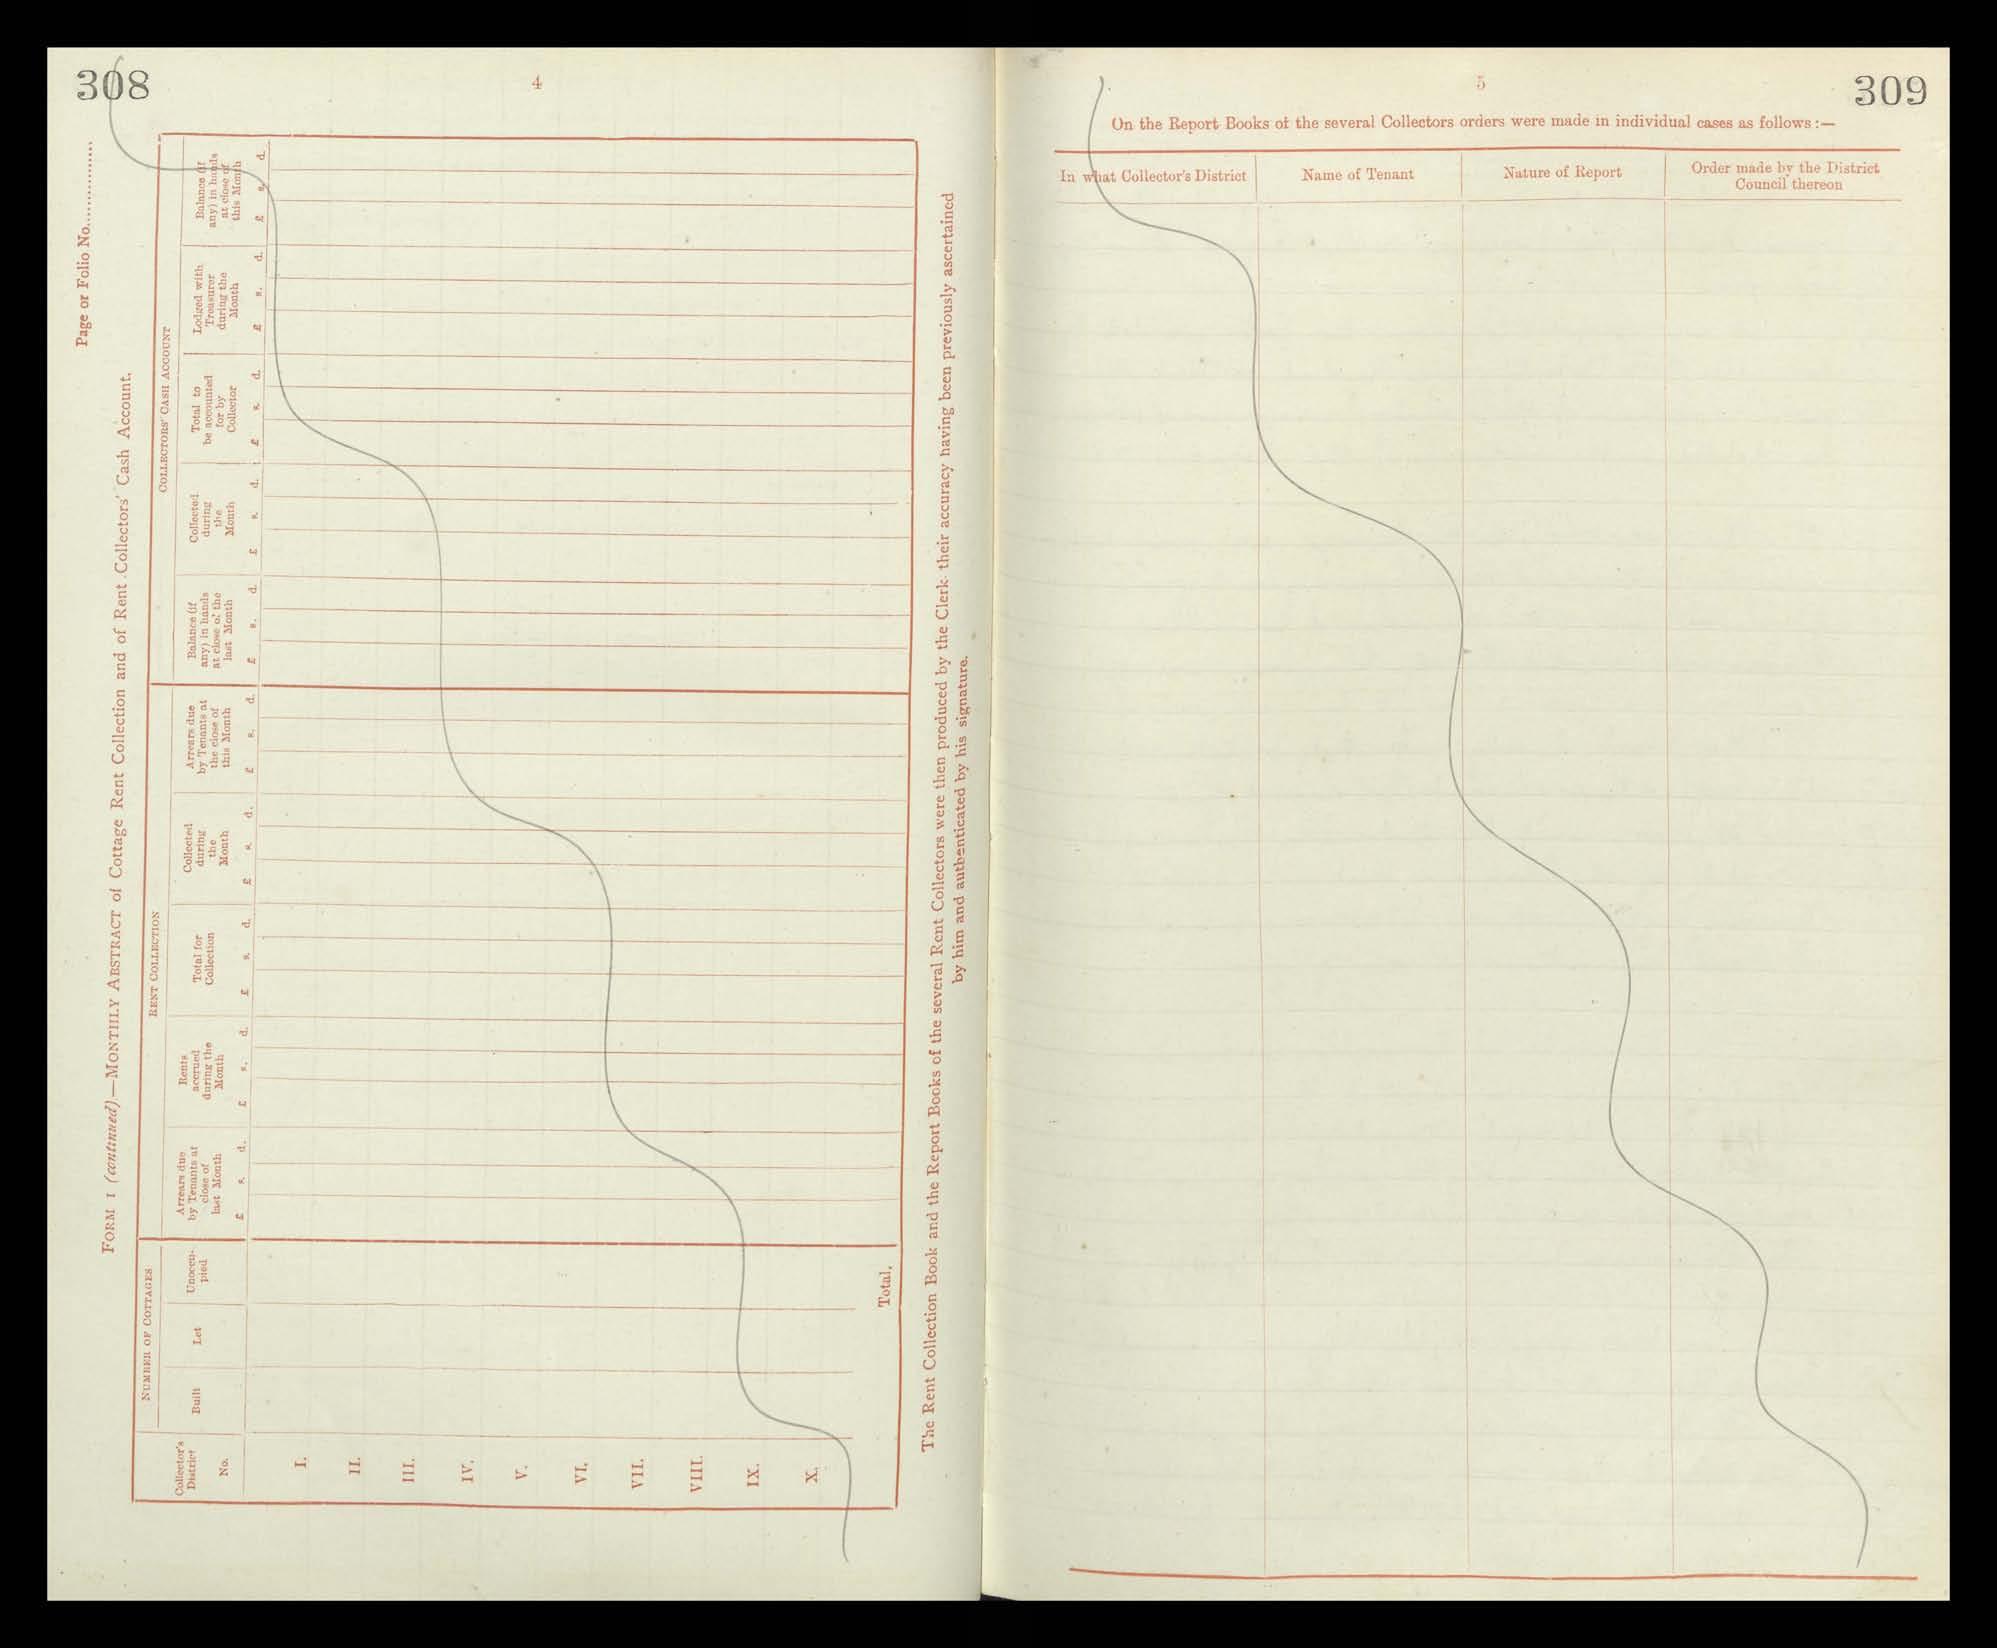 308
4
Page or Folio No................
FORM 1 (continued).—MONTHLY ABSTRACT of Cottage Rent Collection and of Rent Collectors' Cash Account.
NUMBER OF COTTAGES
RENT COLLECTION
COLLECTORS' CASH ACCOUNT
Collector's
District
No.
Built
Let
Unoccu-
pied
Arrears due
by Tenants at
close of
last Month
£ s. d.
Rents
accrued
during the
Month
£ s. d.
Total for
Collection
£ s. d.
Collected
during
the
Month
£ s. d.
Arrears due
by Tenants at
the close of
this Month
£ s. d.
Balance (if
any) in hands
at close of the
last Month
£ s. d.
Collected
during
the
Month
£ s. d.
Total to
be accounted
for by
Collector
£ s. d.
Lodged with
Treasurer
during the
Month
£ s. d.
Balance (if
any) in hands
at close of
this Month
£ s. d.
I.
II.
III.
IV.
V.
VI.
VII.
VIII.
IX.
X.
Total.
The Rent Collection Book and the Report Books of the several Rent Collectors were then produced by the Clerk their accuracy having been previously ascertained
by him and authenticated by his signature.
5
309
On the Report Books of the several Collectors orders were made in individual cases as follows :—
In what Collector's District
Name of Tenant
Nature of Report
Order made by the District
Council thereon